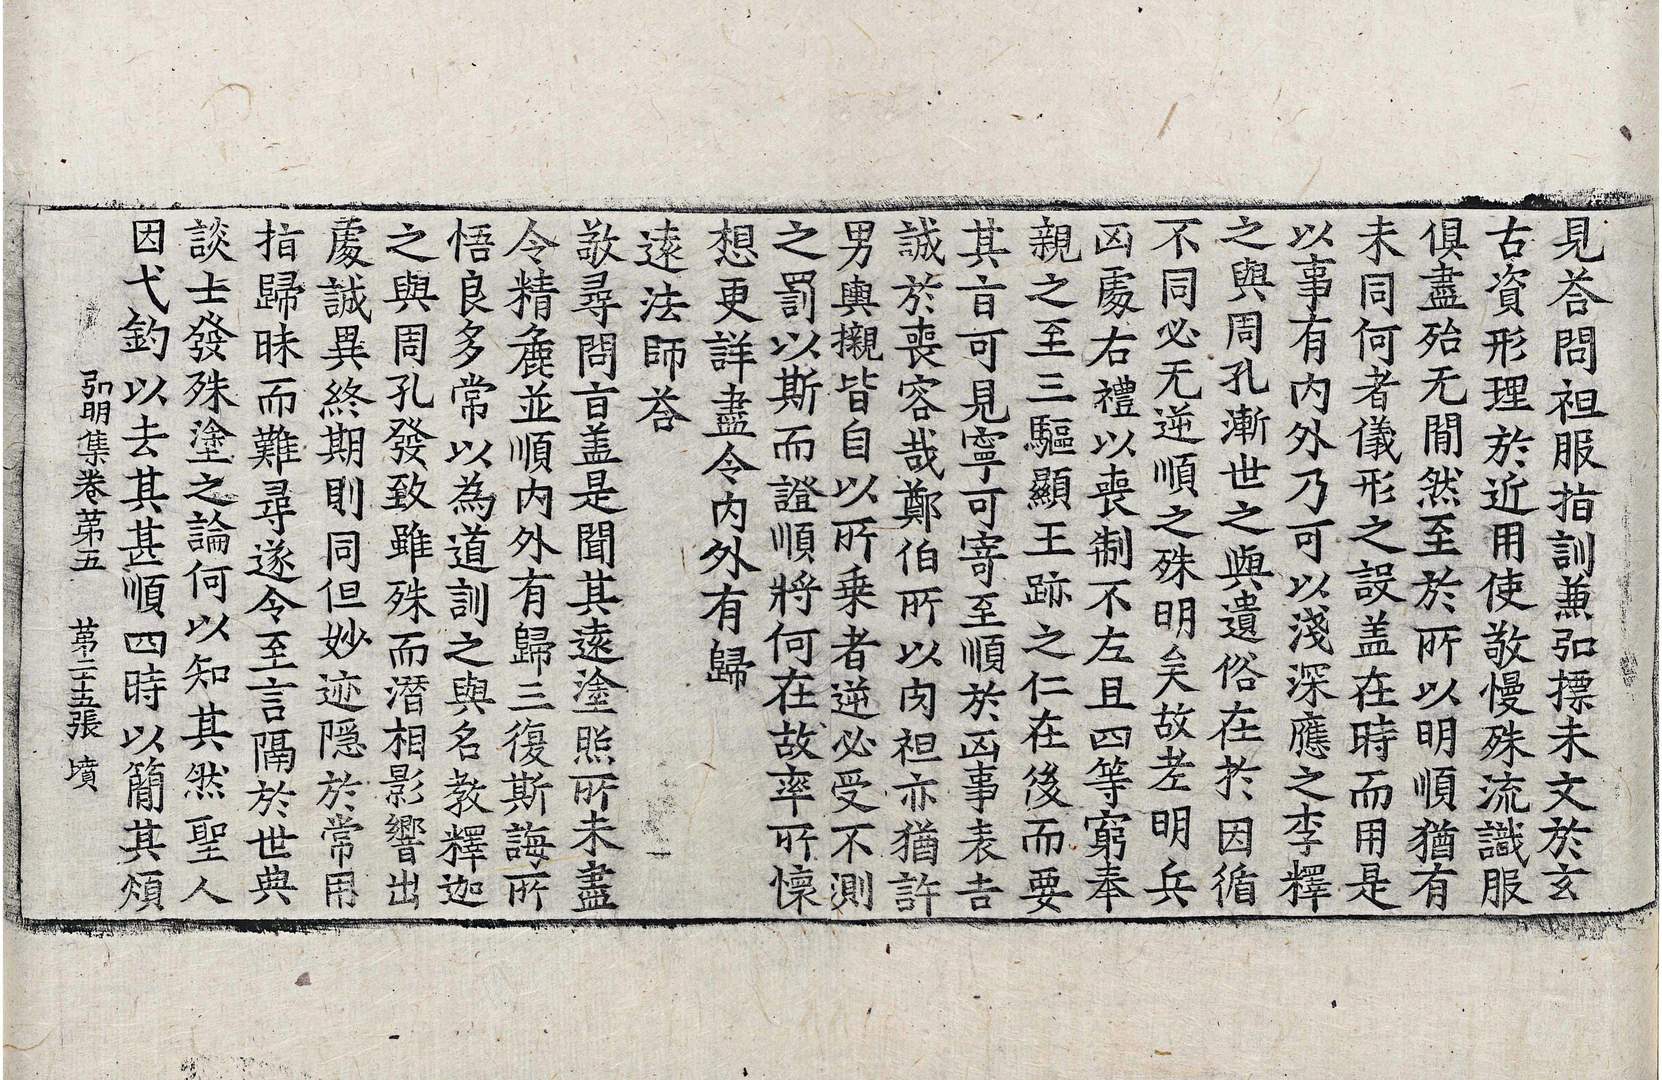 見荅問袒服指訓兼弘摽未文於玄
古資形理於近用使敬慢殊流識服
俱盡殆无閒然至於所以明順猶有
未同何者儀形之設盖在時而用是
以事有內外乃可以淺深應之李釋
之與周孔漸世之與遺俗在扵因循
不同必无逆順之殊明矣故老明兵
凶處右禮以喪制不左且四等窮奉
親之至三驅顯王跡之仁在後而要
其旨可見寧可寄至順於凶事表吉
誠於喪容哉鄭伯所以肉袒亦猶許
男輿櫬皆自以所乗者逆必受不測
之罰以斯而證順將何在故率所懷
想更詳盡令內外有歸
遠法師荅
敬尋問旨盖是聞其遠塗照所未盡
令精麁並順內外有歸三復斯誨所
悟良多常以為道訓之與名教釋迦
之與周孔發致雖殊而潛相影響出
處誠異終期則同但妙迹隱於常用
指歸昧而難尋遂令至言隔於世典
談士發殊塗之論何以知其然聖人
因弋釣以去其甚順四時以簡其煩
弘明集卷第五 第二十五張 墳